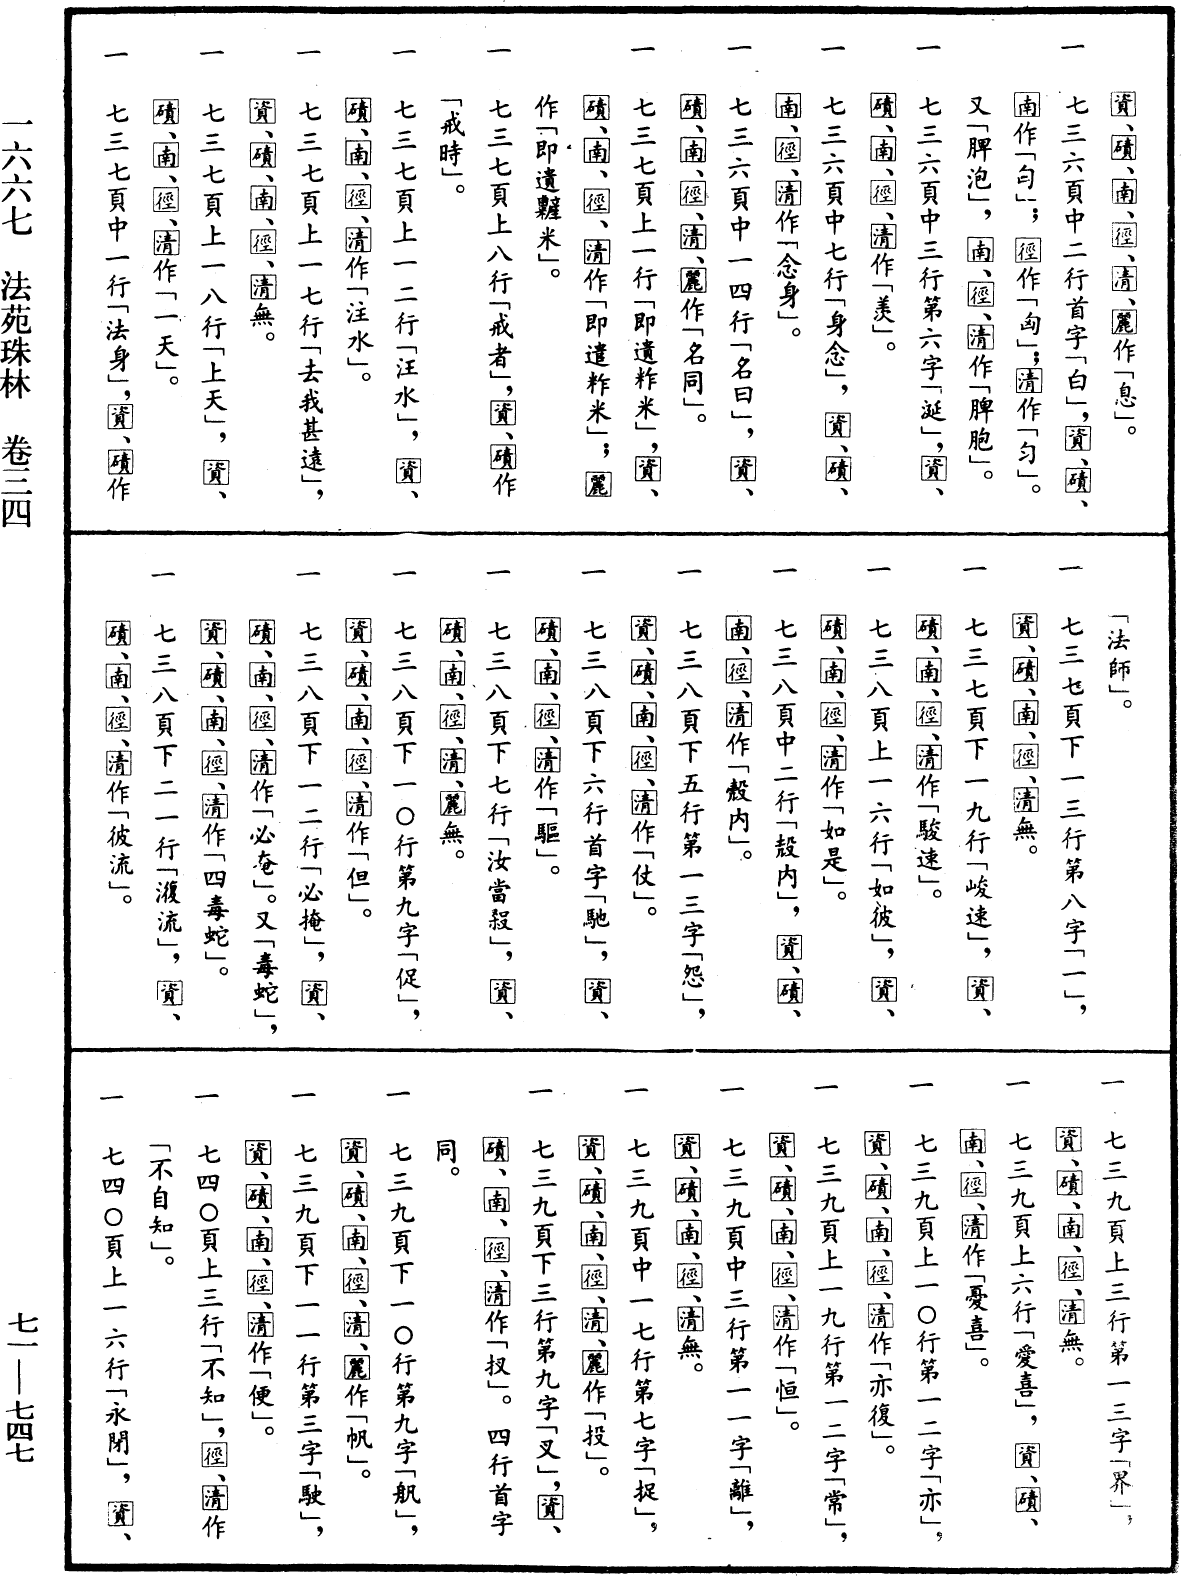 資、磧、南、徑、清、麗作「息」。
一 七三六頁中二行首字「白」，資、磧、
南作「匄」；徑作「㐫」；清作「匀」。
又「脾泡」，南、徑、清作「脾胞」。
一 七三六頁中三行第六字「涎」，資、
磧、南、徑、清作「羨」。
一 七三六頁中七行「身念」，資、磧、
南、徑、清作「念身」。
一 七三六頁中一四行「名曰」，資、
磧、南、徑、清、麗作「名同」。
一 七三七頁上一行「即遺粼米」，資、
磧、南、徑、清作「即遣粼米」；麗
作「即遺糶米」。
一 七三七頁上八行「戒者」，資、磧作
「戒時」。
一 七三七頁上一二行「汪水」，資、
磧、南、徑、清作「注水」。
一 七三七頁上一七行「去我甚遠」，
資、磧、南、徑、清無。
一 七三七頁上一八行「上天」，資、
磧、南、徑、清作「一天」。
一 七三七頁中一行「法身」，資、磧作
「法師」。
一 七三七頁下一三行第八字「一」，
資、磧、南、徑、清無。
一 七三七頁下一九行「峻速」，資、
磧、南、徑、清作「駿速」。
一 七三八頁上一六行「如彼」，資、
磧、南、徑、清作「如是」。
一 七三八頁中二行「殼内」，資、磧、
南、徑、清作「㲉内」。
一 七三八頁下五行第一三字「怨」，
資、磧、南、徑、清作「仗」。
一 七三八頁下六行首字「馳」，資、
磧、南、徑、清作「驅」。
一 七三八頁下七行「汝當殺」，資、
磧、南、徑、清、麗無。
一 七三八頁下一〇行第九字「促」，
資、磧、南、徑、清作「但」。
一 七三八頁下一二行「必掩」，資、
磧、南、徑、清作「必奄」。又「毒蛇」，
資、磧、南、徑、清作「四毒蛇」。
一 七三八頁下二一行「澓流」，資、
磧、南、徑、清作「彼流」。
一 七三九頁上三行第一三字「界」，
資、磧、南、徑、清無。
一 七三九頁上六行「愛喜」，資、磧、
南、徑、清作「憂喜」。
一 七三九頁上一〇行第一二字「亦」，
資、磧、南、徑、清作「亦復」。
一 七三九頁上一九行第一二字「常」，
資、磧、南、徑、清作「恒」。
一 七三九頁中三行第一一字「離」，
資、磧、南、徑、清無。
一 七三九頁中一七行第七字「捉」，
資、磧、南、徑、清、麗作「投」。
一 七三九頁下三行第九字「叉」，資、
磧、南、徑、清作「扠」。四行首字
同。
一 七三九頁下一〇行第九字「舤」，
資、磧、南、徑、清、麗作「帆」。
一 七三九頁下一一行第三字「駛」，
資、磧、南、徑、清作「便」。
一 七四〇頁上三行「不知」，徑、清作
「不自知」。
一 七四〇頁上一六行「永閉」，資、
一六六七 法苑珠林 卷三四
七一——七四七